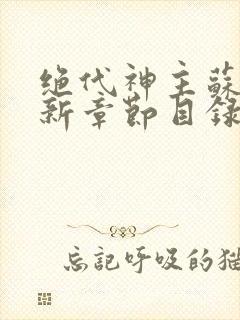 绝代神主蘇
新章節目錄
忘記呼吸的猫